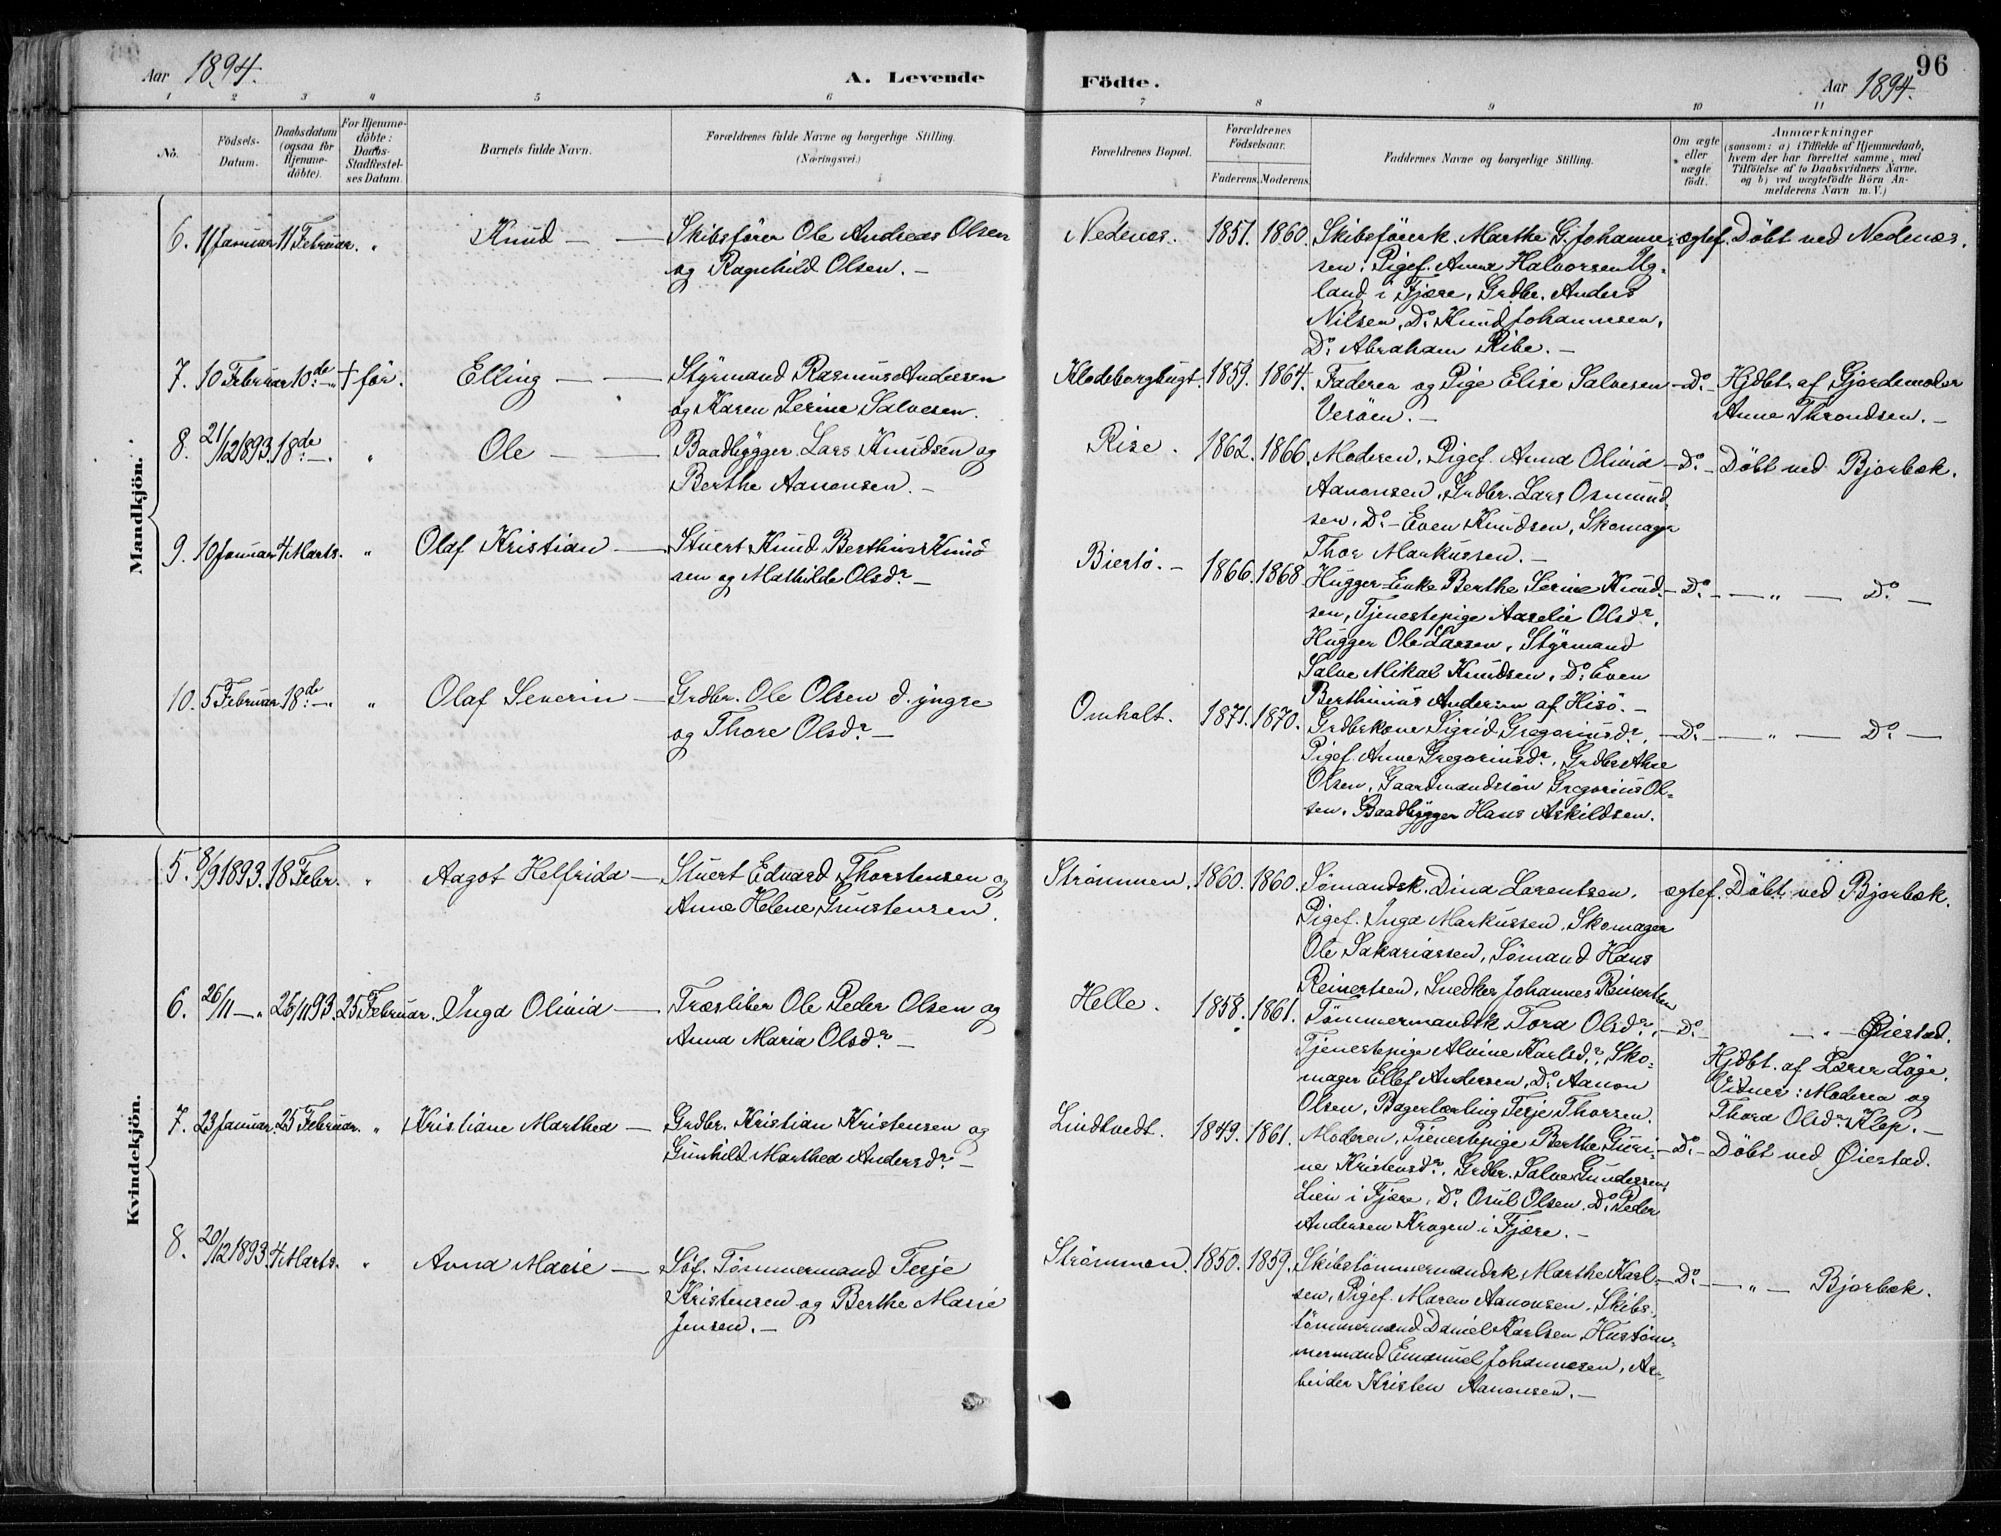 Aar 1894.
A. Levende
Födte.
Aar 1894.
96
1 2 3 4 5 6 7 8 9 10 11
No.
Födsels-Datum.
Daabsdatum (ogsaa for Hjemme-döbte).
For Hjemme-döbte: Daabs-Stadfæstel-ses Datum.
Barnets fulde Navn.
Forældrenes fulde Navne og borgerlige Stilling. (Næringsvei.)
Forældrenes Bopæl.
Forældrenes Födselsaar.
Faderens. Moderens.
Faddernes Navne og borgerlige Stilling.
Om ægte eller uægte födt.
Anmærkninger (saasom: a) i Tilfælde af Hjemmedaab, hvem der har forrettet samme, med Tilföielse af to Daabsvidners Navne. og b) ved uægtefödte Börn An-melderens Navn m. V.)
Mandkjön.
6. 11 Januar 11 Februar. " Knud —
Skibsfører Ole Andreas Olsen
og Ragnhild Olsen. —
Nedenæs. 1851. 1860.
Skibsførerk. Marthe G. Johanne-
sen, Pigef. Anna Halvorsen Ug-
land i Fjære, Grdbr. Anders
Nilsen, Do. Knud Johannesen,
Do. Abraham Ribe. —
ægtef. Döbt ved Nedenæs.
7. 10 Februar 10de — † før. Elling —
Styrmand Rasmus Andersen
og Karen Serine Salvesen.
Klodeborgbugt. 1859. 1864.
Faderen og Pige Elise Salvesen
Verøen. —
— Do. — Hjdbt. af Gjordemoder
Anne Throndsen. —
8. 21/12 1893. 18de —. " Ole —
Baadbygger Lars Knudsen og
Berthe Aanonsen. —
Rise. 1862. 1866.
Moderen, Pigef. Anna Olivia
Aanonsen, Grdbr. Lars Osmund-
sen, Do. — Even Knudsen, Skomager
Thor Markussen. —
— Do. — Döbt ved Bjorbæk.
9. 10 Januar 4 Marts. " Olaf Kristian —
Stuert Knud Berthius Knud-
sen og Mathilde Olsdr. —
Biestø. — 1866. 1868
Hugger-Enke Berthe Serine Knud-
sen, Tjenestepige Aaselie Olsdr.,
Hugger Ole Larsen, Styrmand
Salve Mikal Knudsen, Do. Even
Berthinius Andersen af Hisø. —
— Do. — — " — Do. —
10. 5 Februar 18de —. " Olaf Severin —
Grdbr. Ole Olsen d. yngre
og Thore Olsdr. —
Omholt. 1871. 1870.
Grdbrkone Sigrid Gregoriusdr.,
Pigef. Anne Gregoriusdr., Grdbr. Ahre
Olsen, Gaardmandssøn Gregorius Ol-
sen, Baadbygger Hans Askildsen.
— Do. — — " — Do. —
Kvindekjön.
5. 8/9 1893. 18 Febr. " Aagot Helfrida —
Stuert Edvard Thorstensen og
Anne Helene Gunstensen.
Strømmen. 1860. 1860.
Sømandsk. Dina Lorentsen,
Pigef. Inga Markussen, Skomager
Ole Sakariassen, Sømand Hans
Reinertsen, Snedker Johannes Reinertsen
ægtef. Döbt ved Bjorbæk.
6. 26/11 —" 26/11 93. 25 Februar. Inga Olivia —
Træsliber Ole Peder Olsen og
Anna Maria Olsdr. —
Helle. 1858. 1861.
Tømmermandsk. Tora Olsdr.,
Tjenestepige Alvine Karlsdr., Sko-
mager Ellef Andersen, Do. Aanon
Olsen, Bagerlærling Terje Thorsen.
— Do. — " — Øiestad.
Hjdbt. af Lærer Løge.
Vidner: Moderen og
Thora Olsdr. Klep. —
7. 23 Januar. 25 Februar. " Kristiane Marthea —
Grdbr. Kristian Kristensen og
Gunhild Marthea Andersdr. —
Lindtvedt. 1849. 1861.
Moderen, Tjenestepige Berthe Guri-
ne Kristensdr., Grdbr. Salve Gundersen,
Lien i Fjære, Do. Osul Olsen, Do. Peder
Andersen Krogen i Fjære. —
— Do. — Döbt ved Øiestad.
8. 20/12 1893. 4 Marts. " Anna Marie —
Søf. Tømmermand Terje
Kristensen og Berthe Marie
Jensen. —
Strømmen. 1850. 1859.
Skibstømmermandsk. Marthe Karl-
sen, Pigef. Maren Aanonsen, Skibs-
tømmermand Daniel Karlsen, Hustøm-
mermand Emanuel Johannesen, Ar-
beider Kristen Aanonsen. —
— Do. — — " — Bjorbæk.